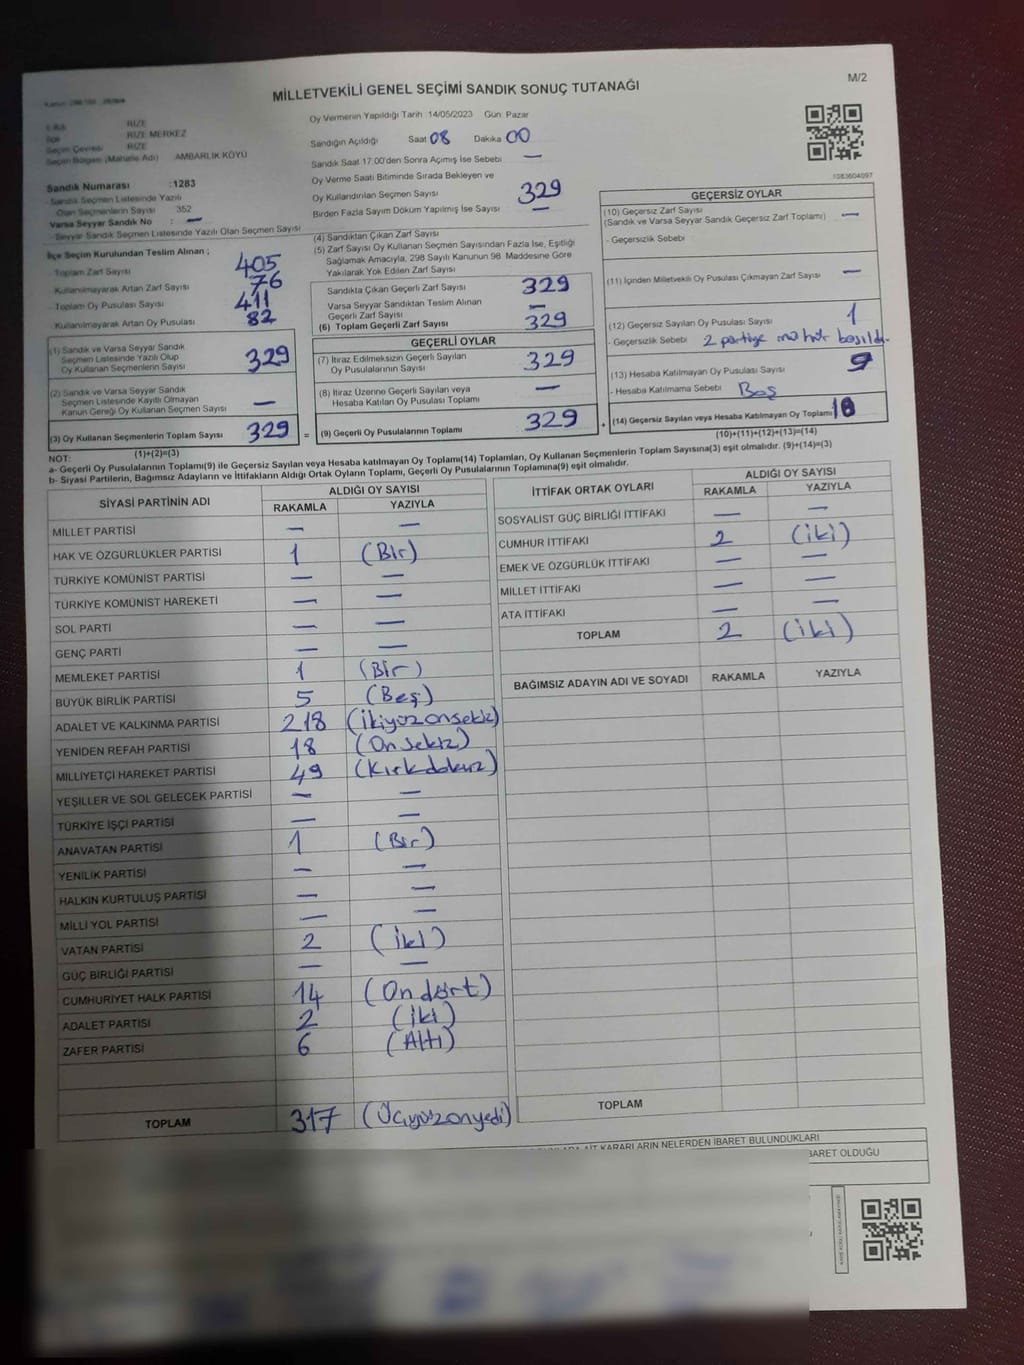 M/2
MİLLETVEKİLİ GENEL SEÇİMİ SANDIK SONUÇ TUTANAĞI
RİZE
RİZE MERKEZ
Seçim Çevresi RİZE
Seçim Bölgesi (Mahalle Adı) AMBARLIK KÖYÜ
Sandık Numarası :1283
- Sandık Seçmen Listesinde Yazılı
Olan Seçmenlerin Sayısı 352
Varsa Seyyar Sandık No : —
- Seyyar Sandık Seçmen Listesinde Yazılı Olan Seçmen Sayısı
İlçe Seçim Kurulundan Teslim Alınan ;
- Toplam Zarf Sayısı 405
- Kullanılmayarak Artan Zarf Sayısı 76
- Toplam Oy Pusulası Sayısı 411
- Kullanılmayarak Artan Oy Pusulası 82
(1) Sandık ve Varsa Seyyar Sandık
Seçmen Listesinde Yazılı Olup
Oy Kullanan Seçmenlerin Sayısı 329
(2) Sandık ve Varsa Seyyar Sandık
Seçmen Listesinde Kayıtlı Olmayan
Kanun Gereği Oy Kullanan Seçmen Sayısı —
(3) Oy Kullanan Seçmenlerin Toplam Sayısı 329
(1)+(2)=(3)
Oy Vermenin Yapıldığı Tarih 14/05/2023 Gün Pazar
Sandığın Açıldığı Saat 08 Dakika 00
Sandık Saat 17:00'den Sonra Açımış İse Sebebi —
Oy Verme Saati Bitiminde Sırada Bekleyen ve
Oy Kullandırılan Seçmen Sayısı 329
Birden Fazla Sayım Döküm Yapılmış İse Sayısı —
(4) Sandıktan Çıkan Zarf Sayısı
(5) Zarf Sayısı Oy Kullanan Seçmen Sayısından Fazla İse, Eşitliği
Sağlamak Amacıyla, 298 Sayılı Kanunun 98. Maddesine Göre
Yakılarak Yok Edilen Zarf Sayısı
Sandıkta Çıkan Geçerli Zarf Sayısı 329
Varsa Seyyar Sandıktan Teslim Alınan
Geçerli Zarf Sayısı —
(6) Toplam Geçerli Zarf Sayısı 329
GEÇERLİ OYLAR
(7) İtiraz Edilmeksizin Geçerli Sayılan
Oy Pusulasının Sayısı 329
(8) İtiraz Üzerine Geçerli Sayılan veya
Hesaba Katılan Oy Pusulası Toplamı —
= (9) Geçerli Oy Pusulalarının Toplamı 329 +
1083604097
GEÇERSİZ OYLAR
(10) Geçersiz Zarf Sayısı
(Sandık ve Varsa Seyyar Sandık Geçersiz Zarf Toplamı) —
- Geçersizlik Sebebi
(11) İçinden Milletvekili Oy Pusulası Çıkmayan Zarf Sayısı —
(12) Geçersiz Sayılan Oy Pusulası Sayısı 1
- Geçersizlik Sebebi 2 partiye mühür basıldı.
(13) Hesaba Katılmayan Oy Pusulası Sayısı 9
- Hesaba Katılmama Sebebi Boş
(14) Geçersiz Sayılan veya Hesaba Katılmayan Oy Toplamı 10
(10)+(11)+(12)+(13)=(14)
NOT:
a- Geçerli Oy Pusulalarının Toplamı(9) ile Geçersiz Sayılan veya Hesaba katılmayan Oy Toplamı(14) Toplamları, Oy Kullanan Seçmenlerin Toplam Sayısına(3) eşit olmalıdır. (9)+(14)=(3)
b- Siyasi Partilerin, Bağımsız Adayların ve İttifakların Aldığı Ortak Oyların Toplamı, Geçerli Oy Pusulalarının Toplamına(9) eşit olmalıdır.
SİYASİ PARTİNİN ADI ALDIĞI OY SAYISI
RAKAMLA YAZIYLA
MİLLET PARTİSİ — —
HAK VE ÖZGÜRLÜKLER PARTİSİ 1 (Bir)
TÜRKİYE KOMÜNİST PARTİSİ — —
TÜRKİYE KOMÜNİST HAREKETİ — —
SOL PARTİ — —
GENÇ PARTİ — —
MEMLEKET PARTİSİ 1 (Bir)
BÜYÜK BİRLİK PARTİSİ 5 (Beş)
ADALET VE KALKINMA PARTİSİ 218 (ikiyüzonsekiz)
YENİDEN REFAH PARTİSİ 18 (Onsekiz)
MİLLİYETÇİ HAREKET PARTİSİ 49 (Kırkdokuz)
YEŞİLLER VE SOL GELECEK PARTİSİ — —
TÜRKİYE İŞÇİ PARTİSİ — —
ANAVATAN PARTİSİ 1 (Bir)
YENİLİK PARTİSİ — —
HALKIN KURTULUŞ PARTİSİ — —
MİLLİ YOL PARTİSİ — —
VATAN PARTİSİ 2 (iki)
GÜÇ BİRLİĞİ PARTİSİ — —
CUMHURİYET HALK PARTİSİ 14 (Ondört)
ADALET PARTİSİ 2 (iki)
ZAFER PARTİSİ 6 (Altı)
TOPLAM 317 (Üçyüzonyedi)
İTTİFAK ORTAK OYLARI ALDIĞI OY SAYISI
RAKAMLA YAZIYLA
SOSYALİST GÜÇ BİRLİĞİ İTTİFAKI — —
CUMHUR İTTİFAKI 2 (iki)
EMEK VE ÖZGÜRLÜK İTTİFAKI — —
MİLLET İTTİFAKI — —
ATA İTTİFAKI — —
TOPLAM 2 (iki)
BAĞIMSIZ ADAYIN ADI VE SOYADI RAKAMLA YAZIYLA
TOPLAM
AİT KARARLARIN NELERDEN İBARET BULUNDUKLARI
İBARET OLDUĞU